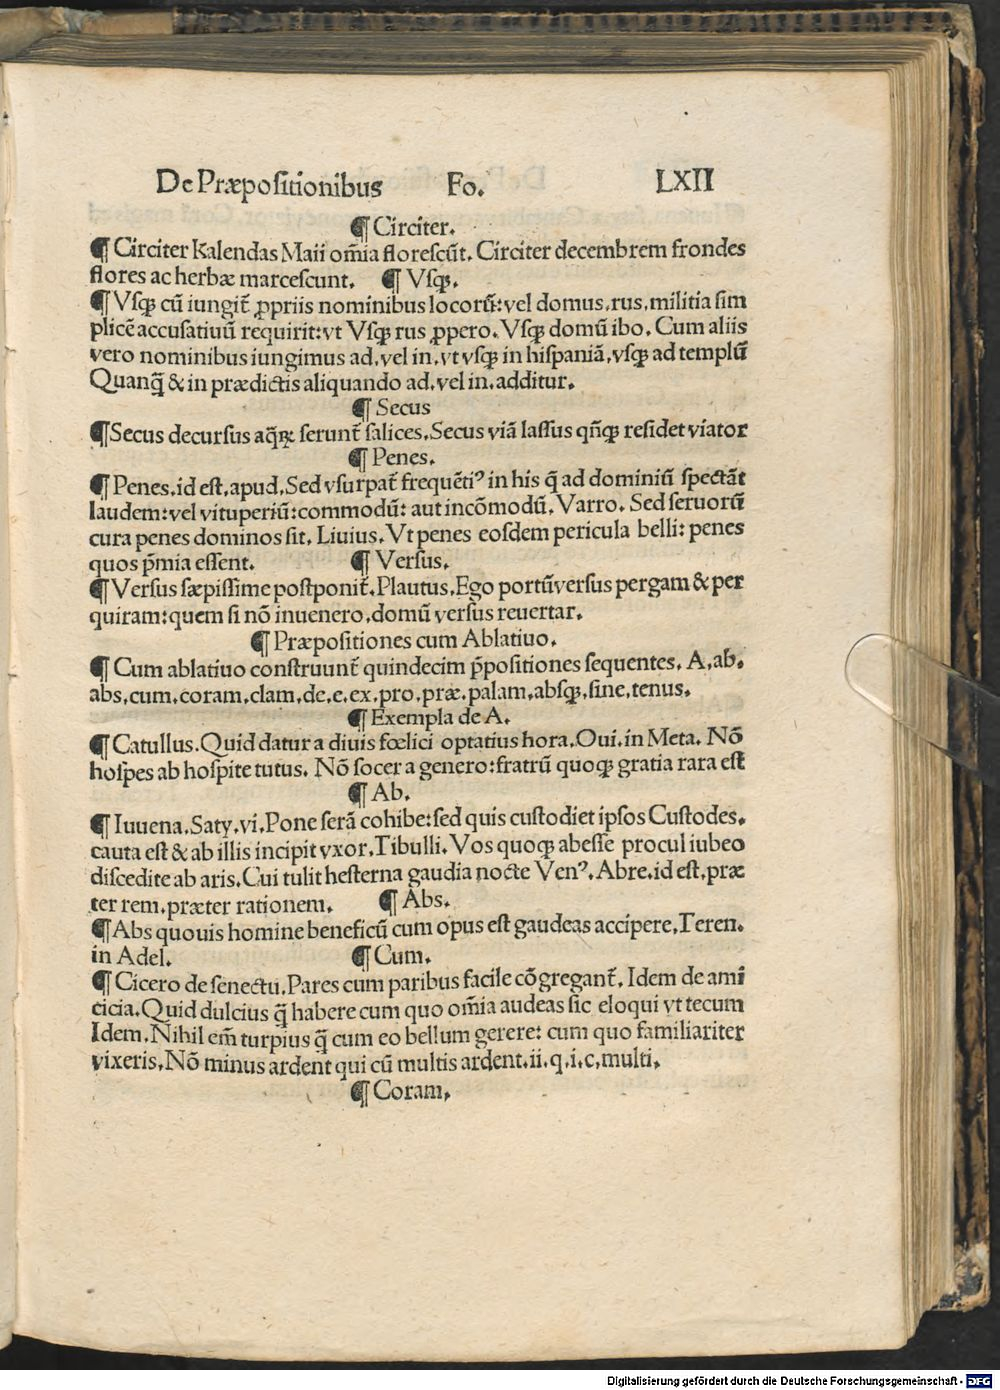 De Præpositionibus Fo. LXII
¶ Circiter.
¶ Circiter Kalendas Maii om̃ia florescũt. Circiter decembrem frondes
flores ac herbæ marcescunt. ¶ Vsqꝫ.
¶ Vsqꝫ cũ iungit̃ ꝓpriis nominibus locorũ: vel domus, rus, militia sim
plicẽ accusatiuũ requirit: vt Vsqꝫ rus ꝓpero. Vsqꝫ domũ ibo. Cum aliis
vero nominibus iungimus ad, vel in, vt vsqꝫ in hispaniã, vsqꝫ ad templũ
Quanq̃ & in prædictis aliquando ad, vel in, additur.
¶ Secus
¶ Secus decursus aq̃ꝝ serunt̃ salices. Secus viã lassus qñqꝫ residet viator
¶ Penes.
¶ Penes, id est, apud. Sed vsurpat̃ frequẽtiꝰ in his q̃ ad dominiũ spectãt
laudem: vel vituperiũ: commodũ: aut incõmodũ. Varro. Sed seruorũ
cura penes dominos sit. Liuius. Vt penes eosdem pericula belli: penes
quos p̃mia essent. ¶ Versus.
¶ Versus sæpissime postponit̃. Plautus. Ego portũversus pergam & per
quiram: quem si nõ inuenero, domũ versus reuertar.
¶ Præpositiones cum Ablatiuo.
¶ Cum ablatiuo construunt̃ quindecim p̃positiones sequentes. A, ab,
abs, cum, coram, clam, de, e, ex, pro, præ, palam, absqꝫ, sine, tenus.
¶ Exempla de A.
¶ Catullus. Quid datur a diuis fœlici optatius hora. Oui. in Meta. Nõ
hospes ab hospite tutus. Nõ socer a genero: fratrũ quoqꝫ gratia rara est
¶ Ab.
¶ Iuuena. Saty. vi. Pone serã cohibe: sed quis custodiet ipsos Custodes.
cauta est & ab illis incipit vxor. Tibulli. Vos quoqꝫ abesse procul iubeo
discedite ab aris. Cui tulit hesterna gaudia nocte Venꝰ. Abre. id est, præ
ter rem, præter rationem. ¶ Abs.
¶ Abs quouis homine beneficũ cum opus est gaudeas accipere, Teren.
in Adel. ¶ Cum.
¶ Cicero de senectu. Pares cum paribus facile cõgregant̃. Idem de ami
ticia. Quid dulcius q̃ habere cum quo om̃ia audeas sic eloqui vt tecum
Idem. Nihil em̃ turpius q̃ cum eo bellum gerere: cum quo familiariter
vixeris. Nõ minus ardent qui cũ multis ardent. ii. q. i. c, multi.
¶ Coram.
Digitalisierung gefördert durch die Deutsche Forschungsgemeinschaft - DFG